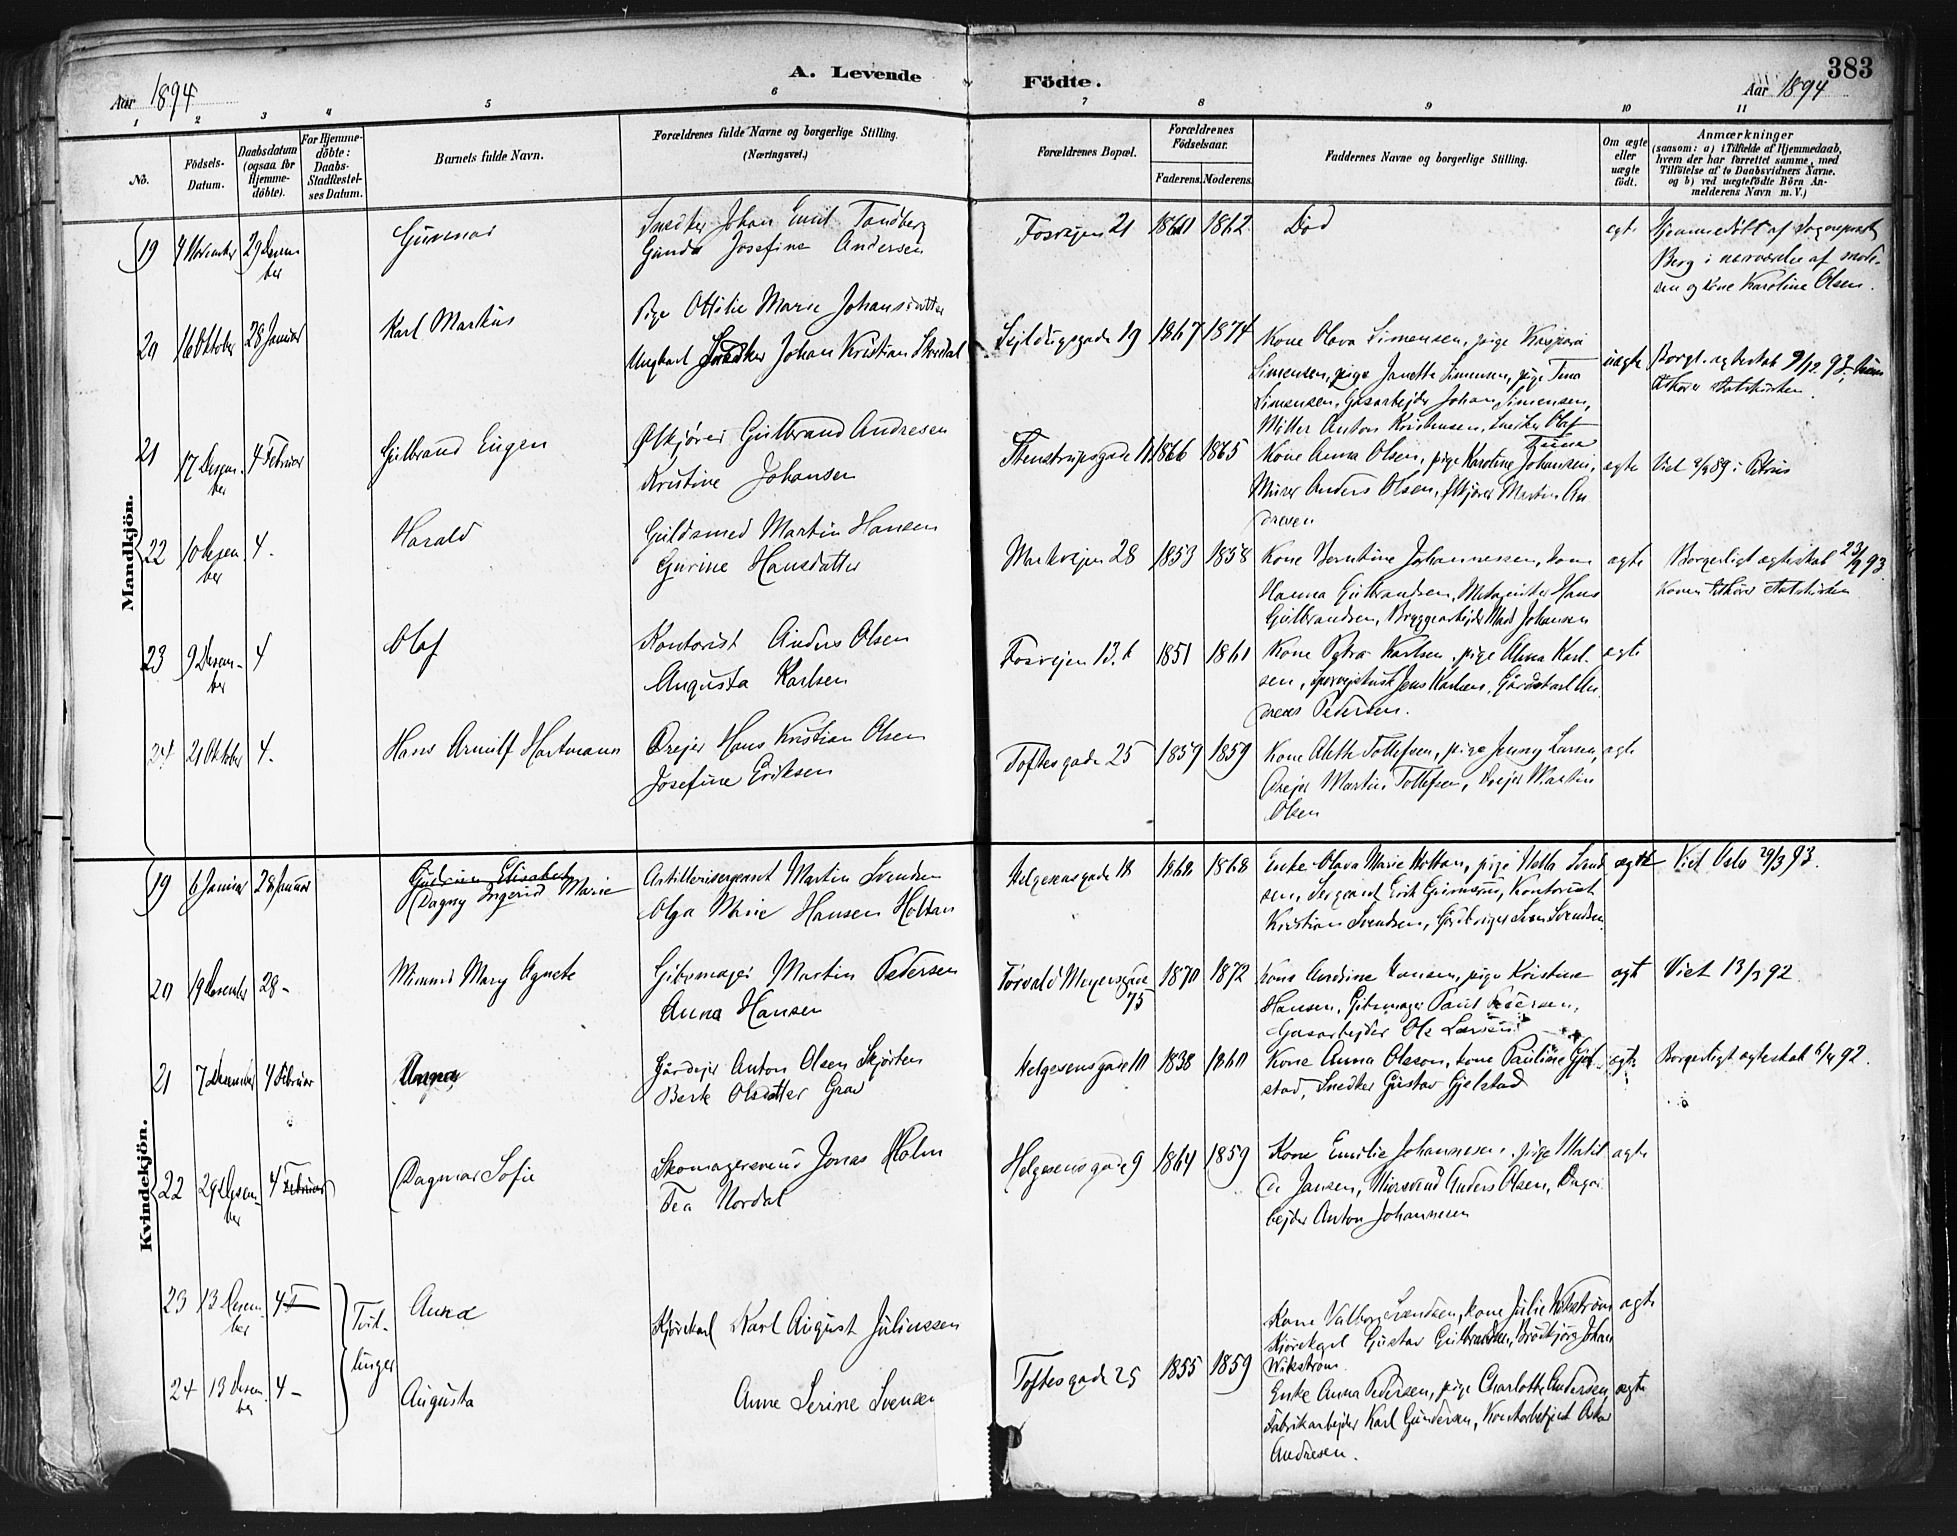 383
A. Levende Födte.
Aar 1894
Aar 1894
1 2 3 4 5 6 7 8 9 10 11
No.
Födsels-Datum.
Daabsdatum (ogsaa for Hjemme-döbte).
For Hjemme-döbte: Daabs-Stadfæstel-ses Datum.
Barnets fulde Navn.
Forældrenes fulde Navne og borgerlige Stilling. (Næringsvei.)
Forældrenes Bopæl.
Forældrenes Födselsaar.
Faderens. Moderens.
Faddernes Navne og borgerlige Stilling.
Om ægte eller uægte födt.
Anmærkninger
(saasom: a) i Tilfælde af Hjemmedaab,
hvem der har forrettet samme, med
Tilföielse af to Daabsvidners Navne.
og b) ved uægtefödte Börn An-
melderens Navn m. V.)
Mandkjön.
19 4 November 29 Desem-ber
Gunnar
Snedker Johan Emil Tandberg
Gunda Josefine Andersen
Fosvejen 21 1860 1862
Död
egte
Hjemmedöbt af Sogneprest
Berg i nærværelse af mode-
ren og kone Karoline Olsen.
20 16 Oktober 28 Januar
Karl Markus
Pige Ottilie Marie Johansdatter
Ungkarl Snedker Johan Kristian Skredal
Sejldugsgade 19 1867 1874
Kone Olava Simensen, pige Kaspara
Simensen, pige Janette Simensen, pige Tina
Simensen, Gasarbejder Johan Simensen,
Möller Anton Kristensen, Snedker Olaf
uægte
Borgl. ægteskab 9/12 93,
tilhører statskirken.
21 17 Desem-ber 4 Februar
Gulbrand Eugen
Ølkjører Gulbrand Andresen
Kristine Johansen
Stenstrupsgade 11 1866 1865
Kone Anna Olsen, pige Karoline Johansen,
Murer Anders Olsen, Ølkjører Martin An
dresen
ægte
Viet 2/2 89 i Petrus
22 10 Desem-ber 4 -
Harald
Guldsmed Martin Hansen
Gurine Hansdatter
Markvejen 28 1853 1858
Kone Berntine Johannessen, kone
Hanna Gulbrandsen, Hans
Gulbrandsen, Bryggearbejder Johansen
ægte
Borgerligt ægteskab 23/9 93.
Konen tilhører statskirken
23 9 Desem-ber 4
Olaf
Kontorist Anders Olsen
Augusta Karlsen
Fosvejen 13.b 1851 1861
Kone Petra Karlsen, pige Anna Karl-
sen, Jens Karlsen, Gårdskarl An
dreas Pedersen.
ægte
24 21 Oktober 4 -
Hans Arnulf Hartmann
Drejer Hans Kristian Olsen
Josefine Eriksen
Toftesgade 25 1859 1859
Kone Aleth Tollefsen, pige Jenny Larsen,
Drejer Martin Tollefsen, Drejer Martin
Olsen
ægte
Kvindekjön.
19 6 Januar 28 Januar
Gudrun Elisabet
Dagny Ingerid Marie
Artillerisergeant Martin Svendsen
Olga Marie Hansen Holtan
Helgesensgade 18 1862 1868
Enke Olava Marie Holtan, pige Svend
sen, Sergeant Erik Kontorist
Kristian Svendsen, Gårdbruger Sven Svendsen
ægte
Viet Oslo 29/3 93.
20 19 Desember 28 -
Mimmi Mary Agnete
Gibsmager Martin Pedersen
Anna Hansen
Torvald Meyersgade 75 1870 1872
Kone Andine Hansen, pige Kristine
Hansen, Gibsmager Paul Pedersen,
Gasarbejder Ole Larsen
ægt
Viet 13/3 92.
21 7 Desember 4 Februar
Anna
Gårdejer Anton Olsen Skjørten
Berte Olsdatter Grav
Helgesensgade 10 1838 1860
Kone Anna Olsson, kone Pauline Gjel-
stad, Snedker Gustav Gjelstad
ægte
Borgerligt ægteskab 6/4 92.
22 29 Desem-ber 4 Februar
Dagmar Sofie
Skomagersvend Jonas Holm
Tea Nordal
Helgesensgade 9 1864 1859
Kone Emilie Johannesen, pige Matil
de Jansen, Mursvend Anders Olsen, Dagar
bejder Anton Johannesen
ægte
23 13 Desem-ber 4 F
Tvil-
linger
Anna
Kjørekarl Karl August Juliussen
Kone Valborg Svendsen, kone Julie Wikström
Kjørekarl Gustav Gulbrandsen, Brödkjører Johan
Wikström.
ægte
24 13 Desem-ber 4 -
Augusta
Anne Serine Svensen
Toftesgade 25 1855 1859
Enke Anna Pedersen, pige Charlotte Andersen
Fabrikarbejder Karl Gundersen, Kontorbetjent Oskar
Andresen.
ægte